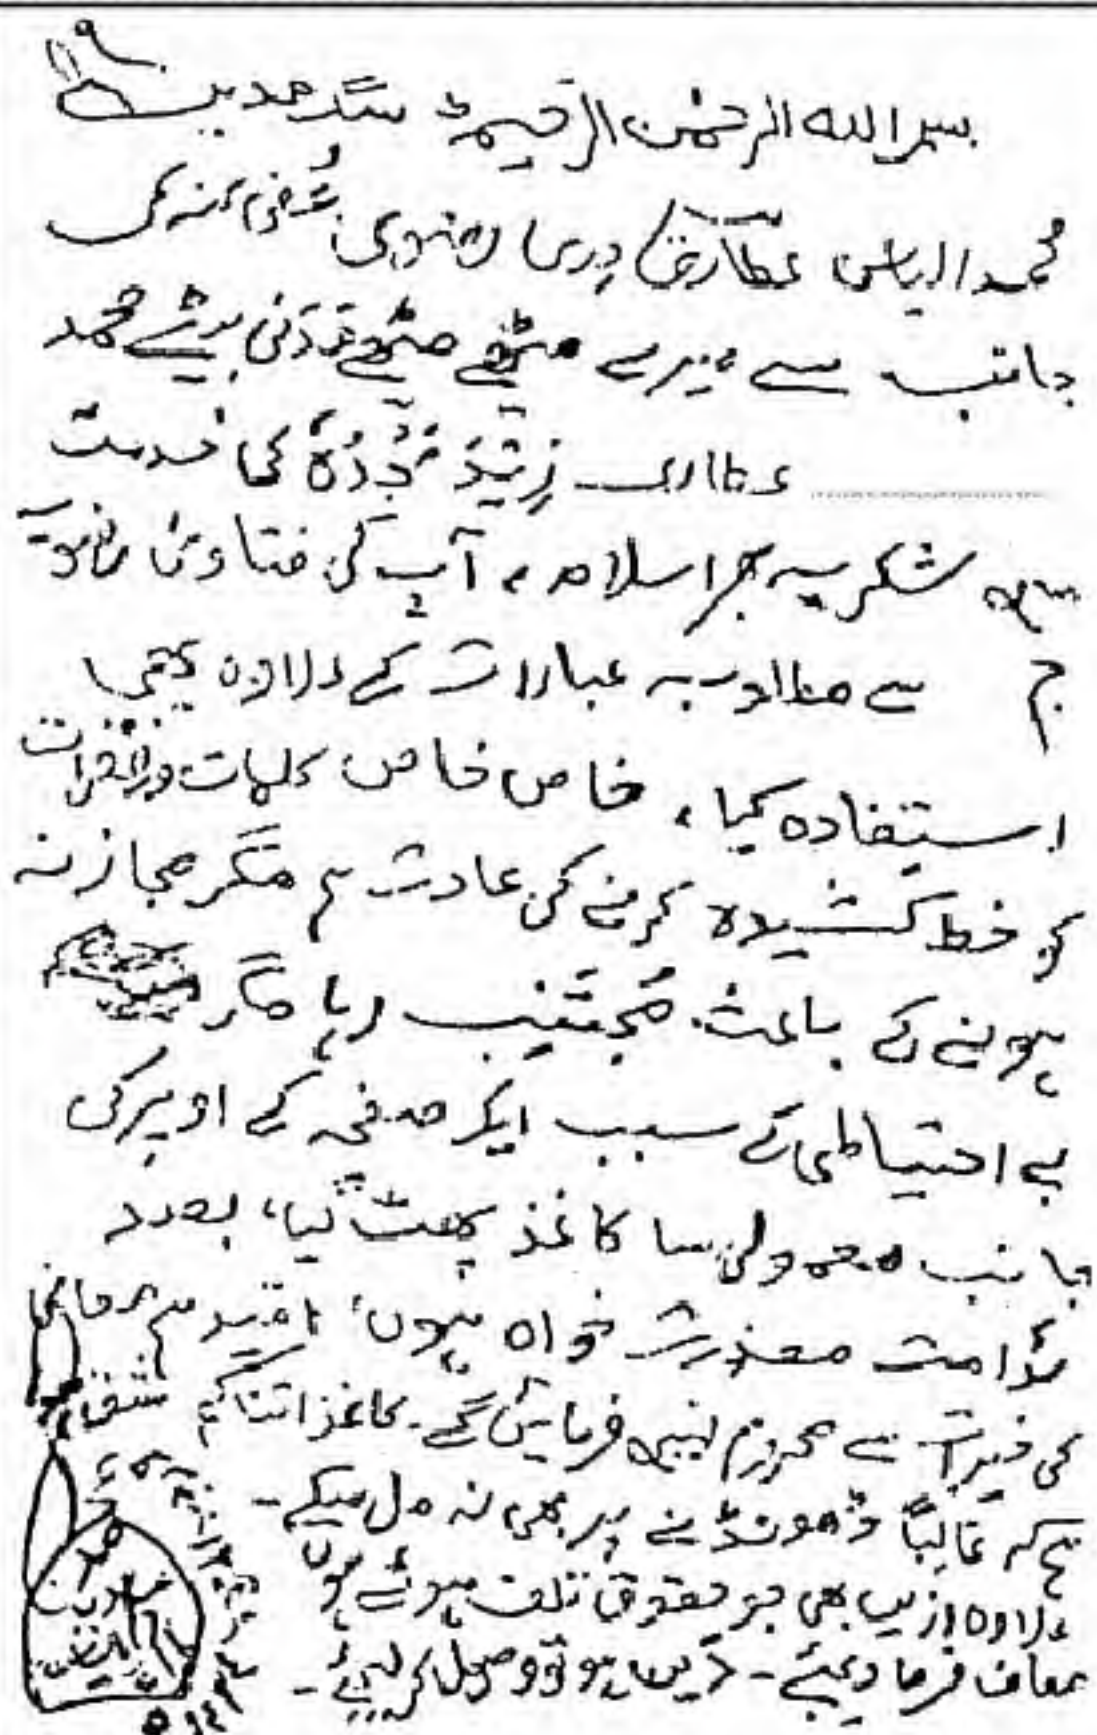 بسم اللہ الرحمٰن الرحیم ط سگِ مدینہ
محمد الیاس عطّار قادری رضوی عُفِیَ عنہ کی
جانب سے میرے میٹھے میٹھے مَدَنی بیٹے محمد
............ عطاری زِیْدَ مَجْدُہٗ کی خدمت
میں شکریہ بھرا سلام، آپ کی فتاویٰ رضویہ
ج سے مطلوبہ عبارات کے علاوہ بھی
استفادہ کیا، خاص خاص کلمات و فقرات
کو خط کشیدہ کرنے کی عادت ہے مگر مجاز نہ
ہونے کے باعث مُجْتَنِب رہا مگر
بے احتیاطی کے سبب ایک صفحہ کے اوپر کی
جانب معمولی سا کاغذ پھٹ گیا، بصد
ندامت معذرت خواہ ہوں، امّید ہے معافی
کی خیرات سے محروم نہیں فرمائیں گے۔ کاغذ اتنا کم شق
ہے کہ غالباً ڈھونڈنے پر بھی نہ مل سکے۔
علاوہ ازیں بھی جو حقوق تلف ہوئے ہوں
معاف فرما دیجئے۔ دَین ہو تو وصول کر لیجئے۔